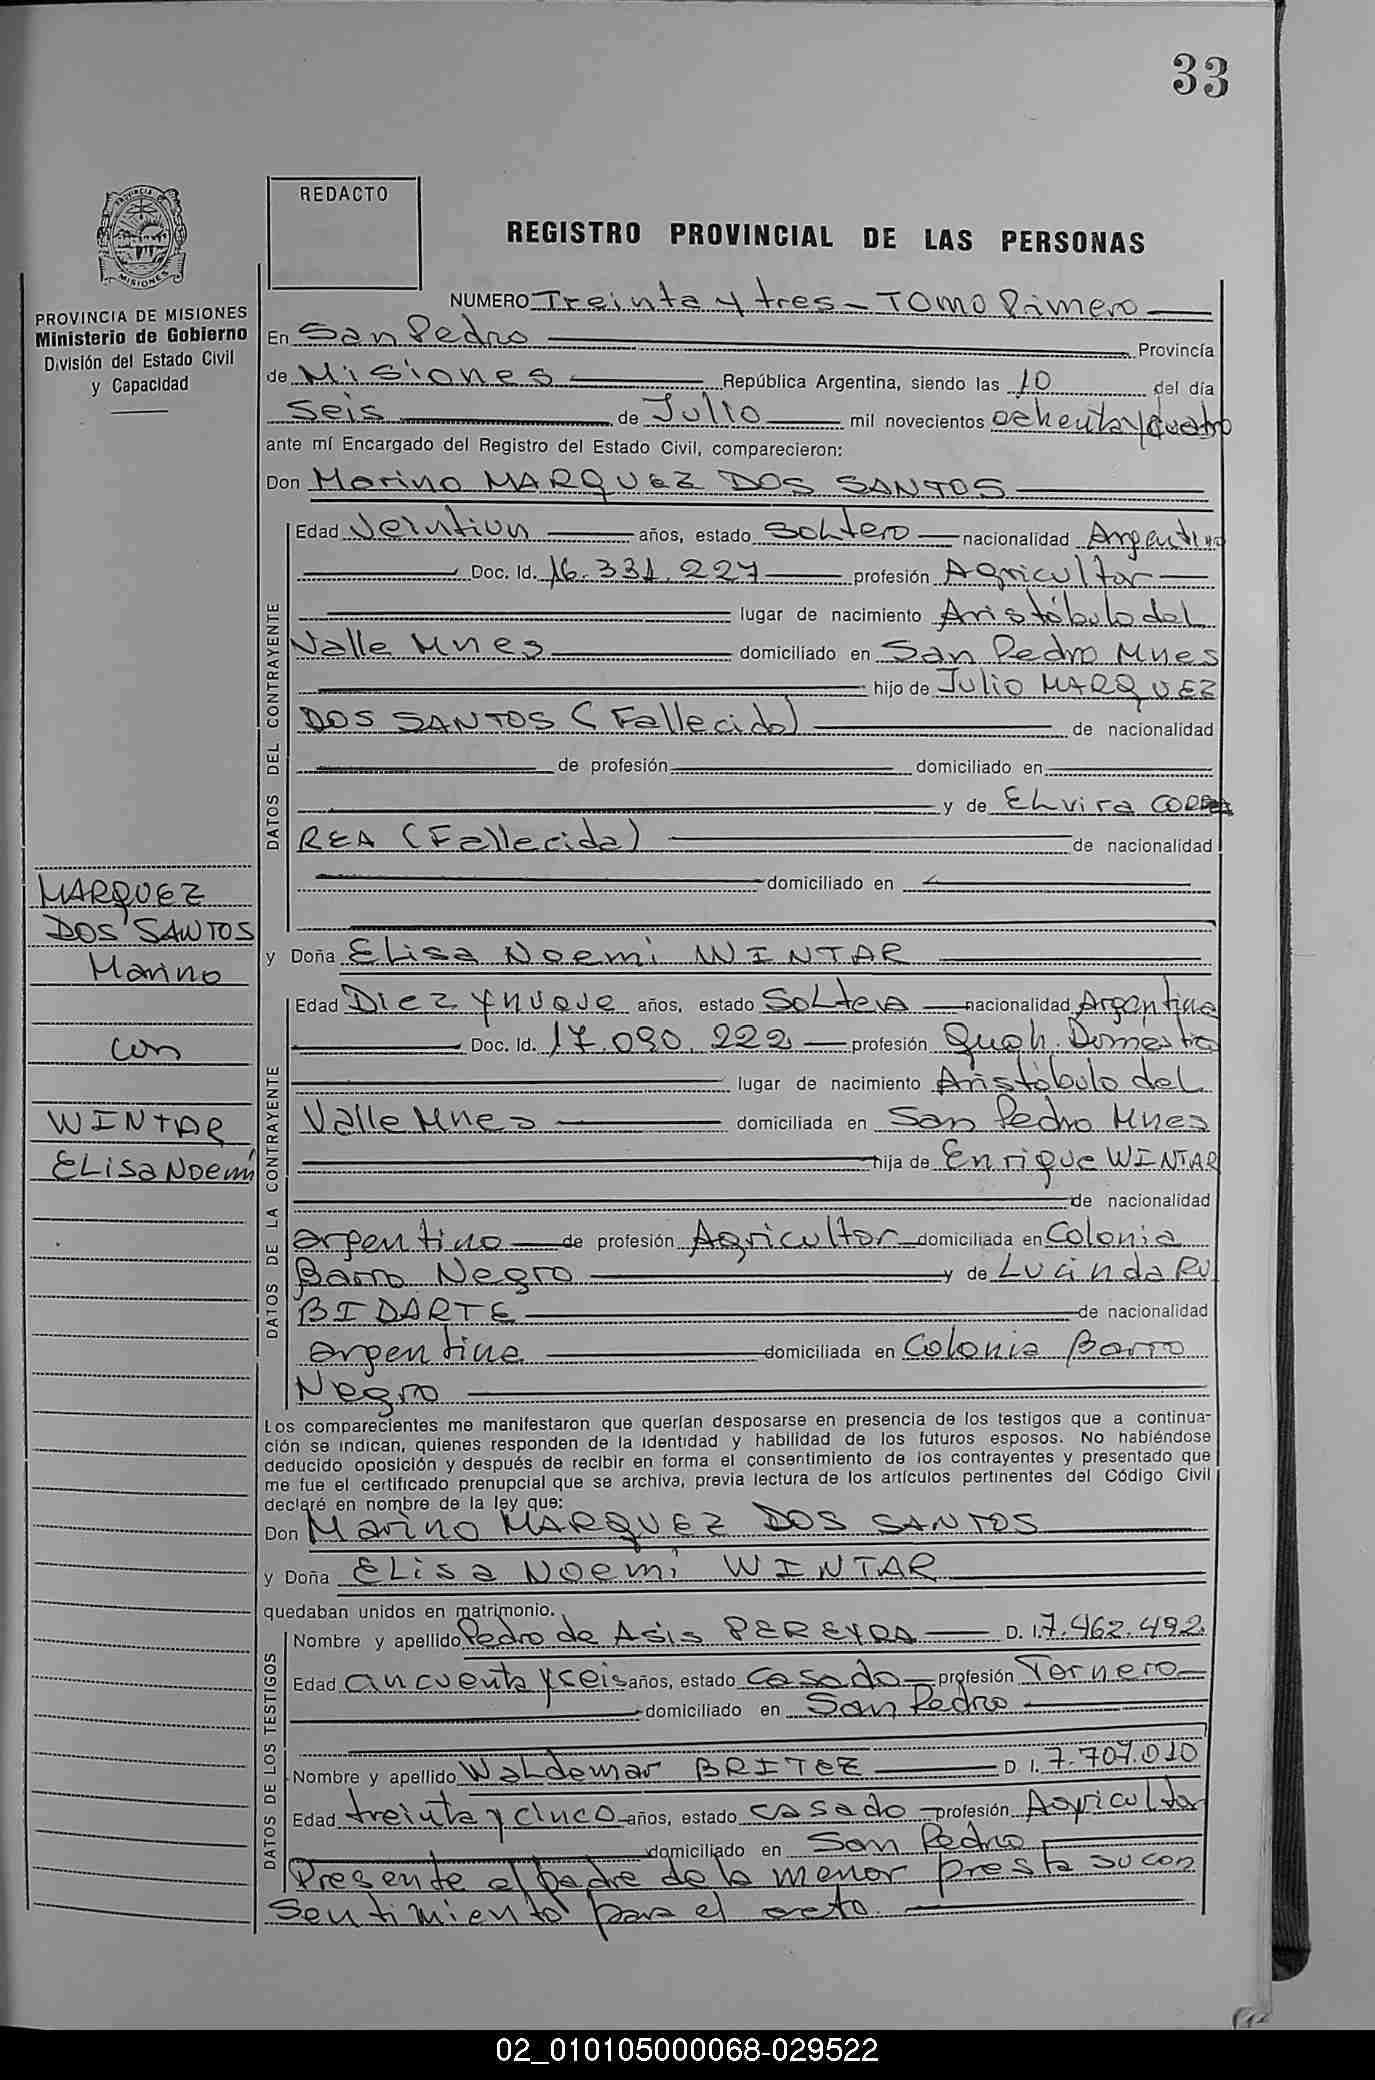 33
PROVINCIA DE
MISIONES
PROVINCIA DE MISIONES
Ministerio de Gobierno
División del Estado Civil
y Capacidad
REDACTO
REGISTRO PROVINCIAL DE LAS PERSONAS
NUMERO Treinta y tres - TOMO Primero
En San Pedro Provincia
de Misiones República Argentina, siendo las 10 del día
Seis de Julio mil novecientos ochenta y cuatro
ante mí Encargado del Registro del Estado Civil, comparecieron:
Don Marino MARQUEZ DOS SANTOS
DATOS DEL CONTRAYENTE
Edad Veintiun años, estado Soltero nacionalidad Argentino
Doc. Id. 16.331.227 profesión Agricultor
lugar de nacimiento Aristóbulo del
Valle Mnes domiciliado en San Pedro Mnes
hijo de Julio MARQUEZ
DOS SANTOS (Fallecido) de nacionalidad
de profesión domiciliado en
y de Elvira COR
REA (Fallecida) de nacionalidad
domiciliado en
y Doña Elisa Noemi WINTAR
DATOS DE LA CONTRAYENTE
Edad Diez y nueve años, estado Soltera nacionalidad Argentina
Doc. Id. 17.090.222 profesión Queh. Domestico
lugar de nacimiento Aristóbulo del
Valle Mnes domiciliada en San Pedro Mnes
hija de Enrique WINTAR
de nacionalidad
argentino de profesión Agricultor domiciliada en Colonia
Barro Negro y de Lucinda RU
BIDARTE de nacionalidad
argentina domiciliada en Colonia Barro
Negro
MARQUEZ
DOS SANTOS
Marino
con
WINTAR
Elisa Noemi
Los comparecientes me manifestaron que querían desposarse en presencia de los testigos que a continua-
ción se indican, quienes responden de la identidad y habilidad de los futuros esposos. No habiéndose
deducido oposición y después de recibir en forma el consentimiento de los contrayentes y presentado que
me fue el certificado prenupcial que se archiva, previa lectura de los artículos pertinentes del Código Civil
declaré en nombre de la ley que:
Don Marino MARQUEZ DOS SANTOS
y Doña Elisa Noemi WINTAR
quedaban unidos en matrimonio.
DATOS DE LOS TESTIGOS
Nombre y apellido Pedro de Asis PEREYRA D. I. 7.462.492
Edad cincuenta y seis años, estado casado profesión Tornero
domiciliado en San Pedro
Nombre y apellido Waldemar BRITEZ D. I. 7.707.010
Edad treinta y cinco años, estado casado profesión Agricultor
domiciliado en San Pedro
Presente el padre de la menor presta su con
sentimiento para el acto.
02_010105000068-029522